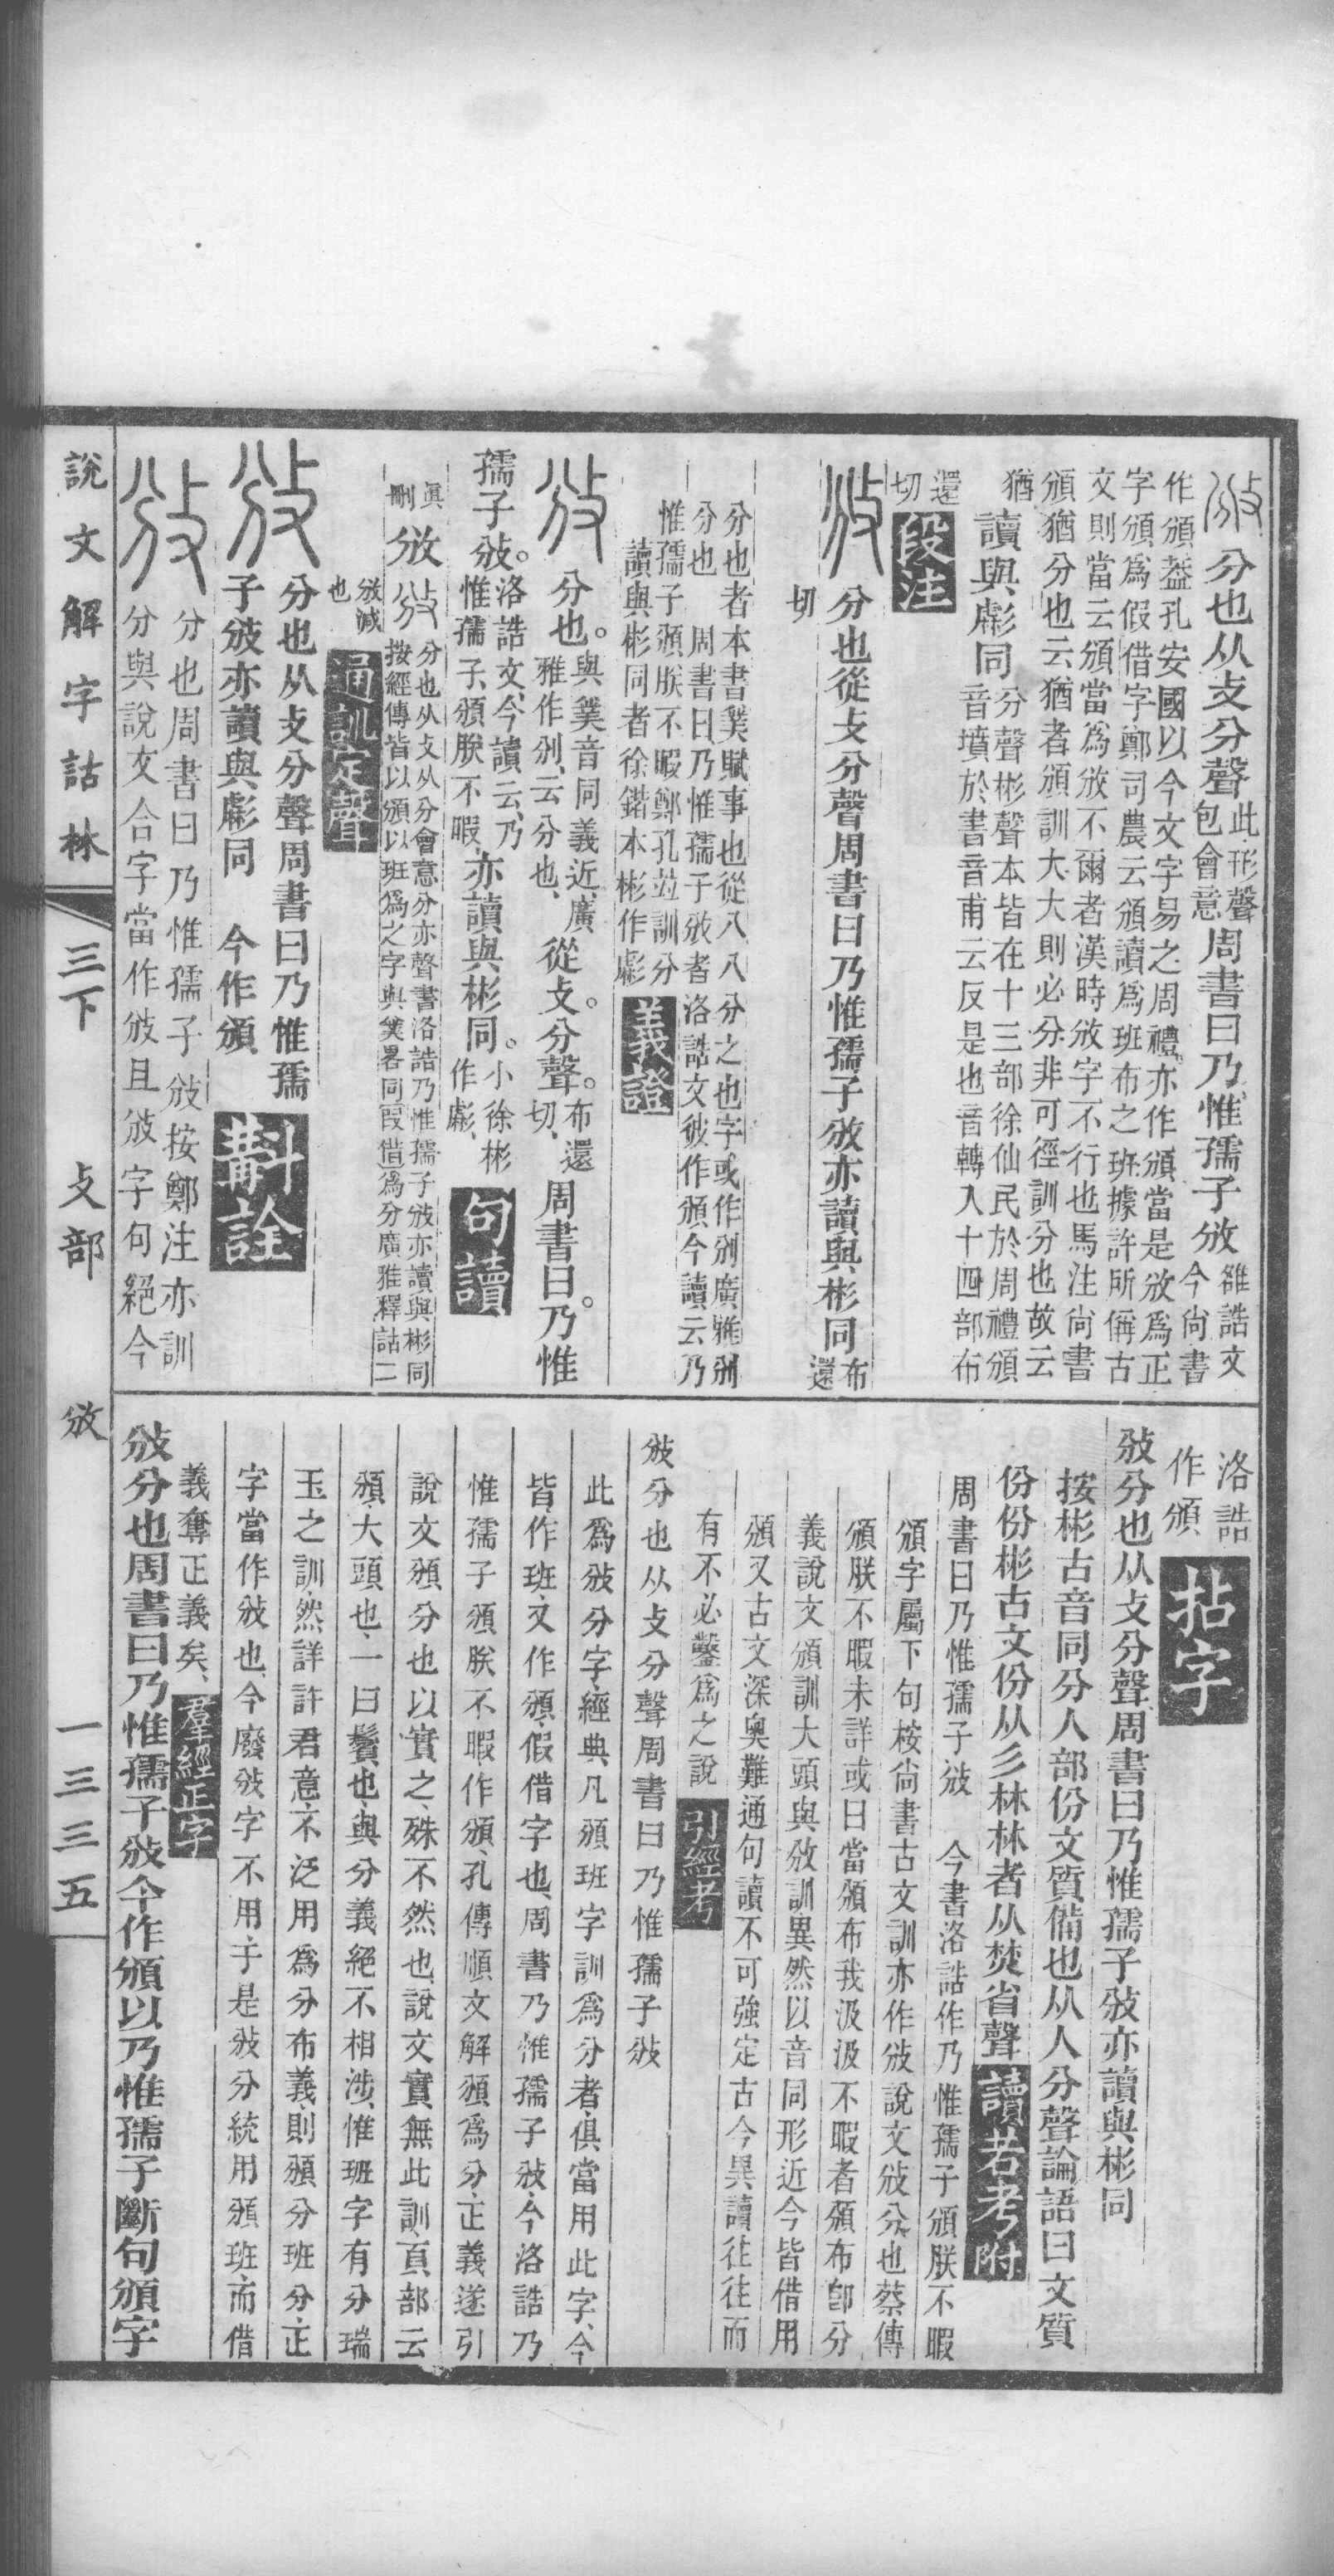 分也从攴分聲此形聲包會意周書曰乃惟孺子攽雒誥文今尚書
作頒葢孔安國以今文字易之周禮亦作頒當是攽爲正
字頒爲假借字鄭司農云頒讀爲班布之班據許所偁古
文則當云頒當爲攽不爾者漢時攽字不行也馬注尚書
頒猶分也云猶者頒訓大大則必分非可徑訓分也故云
猶讀與彪同分聲彬聲本皆在十三部徐仙民於周禮頒音墳於書音甫云反是也音轉入十四部布
還切段注
分也從攴分聲周書曰乃惟孺子攽亦讀與彬同布還
切
分也者本書㒒賦事也從八八分之也字或作㓜廣雅㓜
分也　周書曰乃惟孺子攽者洛誥文彼作頒今讀云乃
惟孺子頒朕不暇鄭孔竝訓分
讀與彬同者徐鍇本彬作彪義證
分也與㒒音同義近廣雅作㓜云分也從攴分聲布還切周書曰乃惟
孺子攽洛誥文今讀云乃惟孺子頒朕不暇亦讀與彬同小徐彬作彪句讀
眞刪攽分也从攴从分會意分亦聲書洛誥乃惟孺子攽亦讀與彬同按經傳皆以頒以班爲之字與㒒畧同叚借爲分廣雅釋詁二
攽減也通訓定聲
分也从攴分聲周書曰乃惟孺
子攽亦讀與彪同　今作頒斠詮
分也周書曰乃惟孺子攽按鄭注亦訓
分與說文合字當作攽且攽字句絕今
洛誥作頒拈字
攽分也从攴分聲周書曰乃惟孺子攽亦讀與彬同
按彬古音同分人部份文質備也从人分聲論語曰文質
份份彬古文份从彡林林者从焚省聲讀若考附
周書曰乃惟孺子攽　今書洛誥作乃惟孺子頒朕不暇
頒字屬下句桉尚書古文訓亦作攽說文攽分也蔡傳
頒朕不暇未詳或曰當頒布我汲汲不暇者頒布卽分
義說文頒訓大頭與攽訓異然以音同形近今皆借用
頒又古文深奧難通句讀不可強定古今異讀往往而
有不必鑿爲之說引經考
攽分也从攴分聲周書曰乃惟孺子攽
此爲攽分字經典凡頒班字訓爲分者俱當用此字今
皆作班又作頒假借字也周書乃惟孺子攽今洛誥乃
惟孺子頒朕不暇作頒孔傳順文解頒爲分正義遂引
說文頒分也以實之殊不然也說文實無此訓頁部云
頒大頭也一曰鬢也與分義絕不相涉惟班字有分瑞
玉之訓然詳許君意不泛用爲分布義則頒分班分正
字當作攽也今廢攽字不用于是攽分統用頒班而借
義奪正義矣羣經正字
攽分也周書曰乃惟孺子攽今作頒以乃惟孺子斷句頒字
說文解字詁林　三下　攴部　攽　一三三五